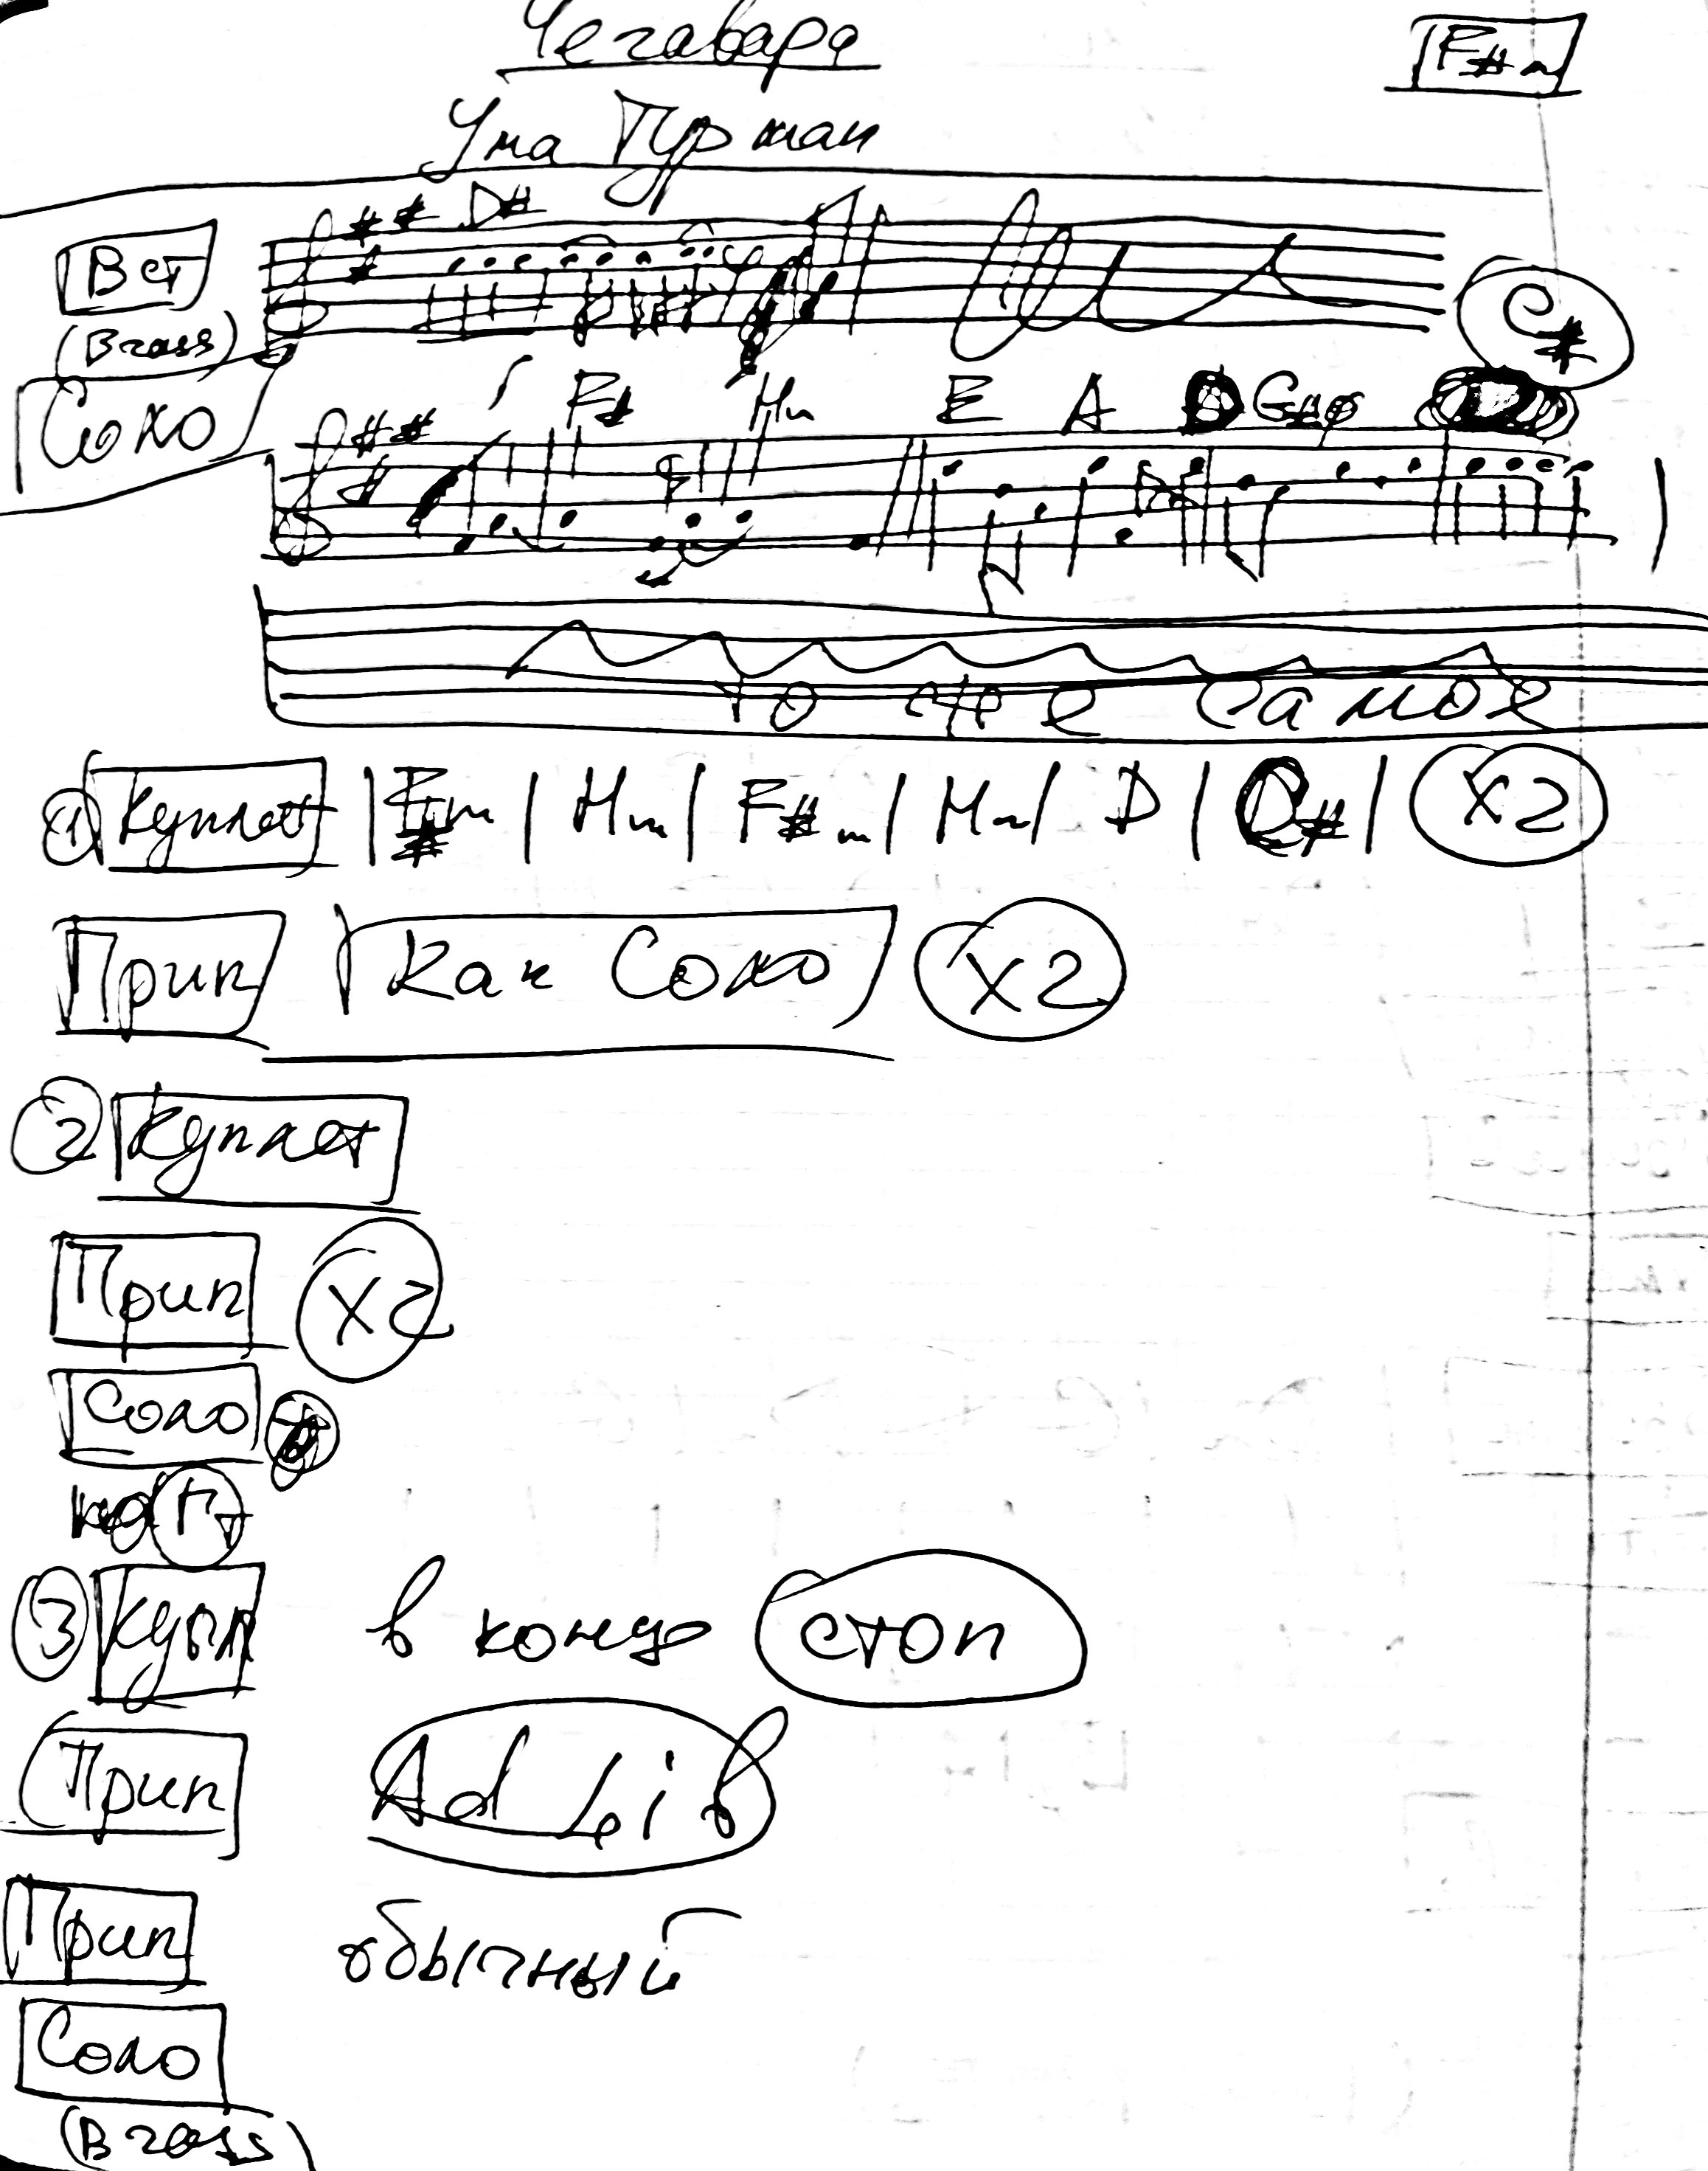 Чегавара
F#m
Ума Турман
Вст
D#
(Brass)
C#
Соло
F# Hm E A G#
то же самое
1 Куплет | F#m | Hm | F#m | Hm | D | C# | X2
Прип Как Соло X2
2 Куплет
Прип X2
Соло
3 Купл в конце стоп
Прип Ad Lib
Прип обычный
Соло
(Brass)